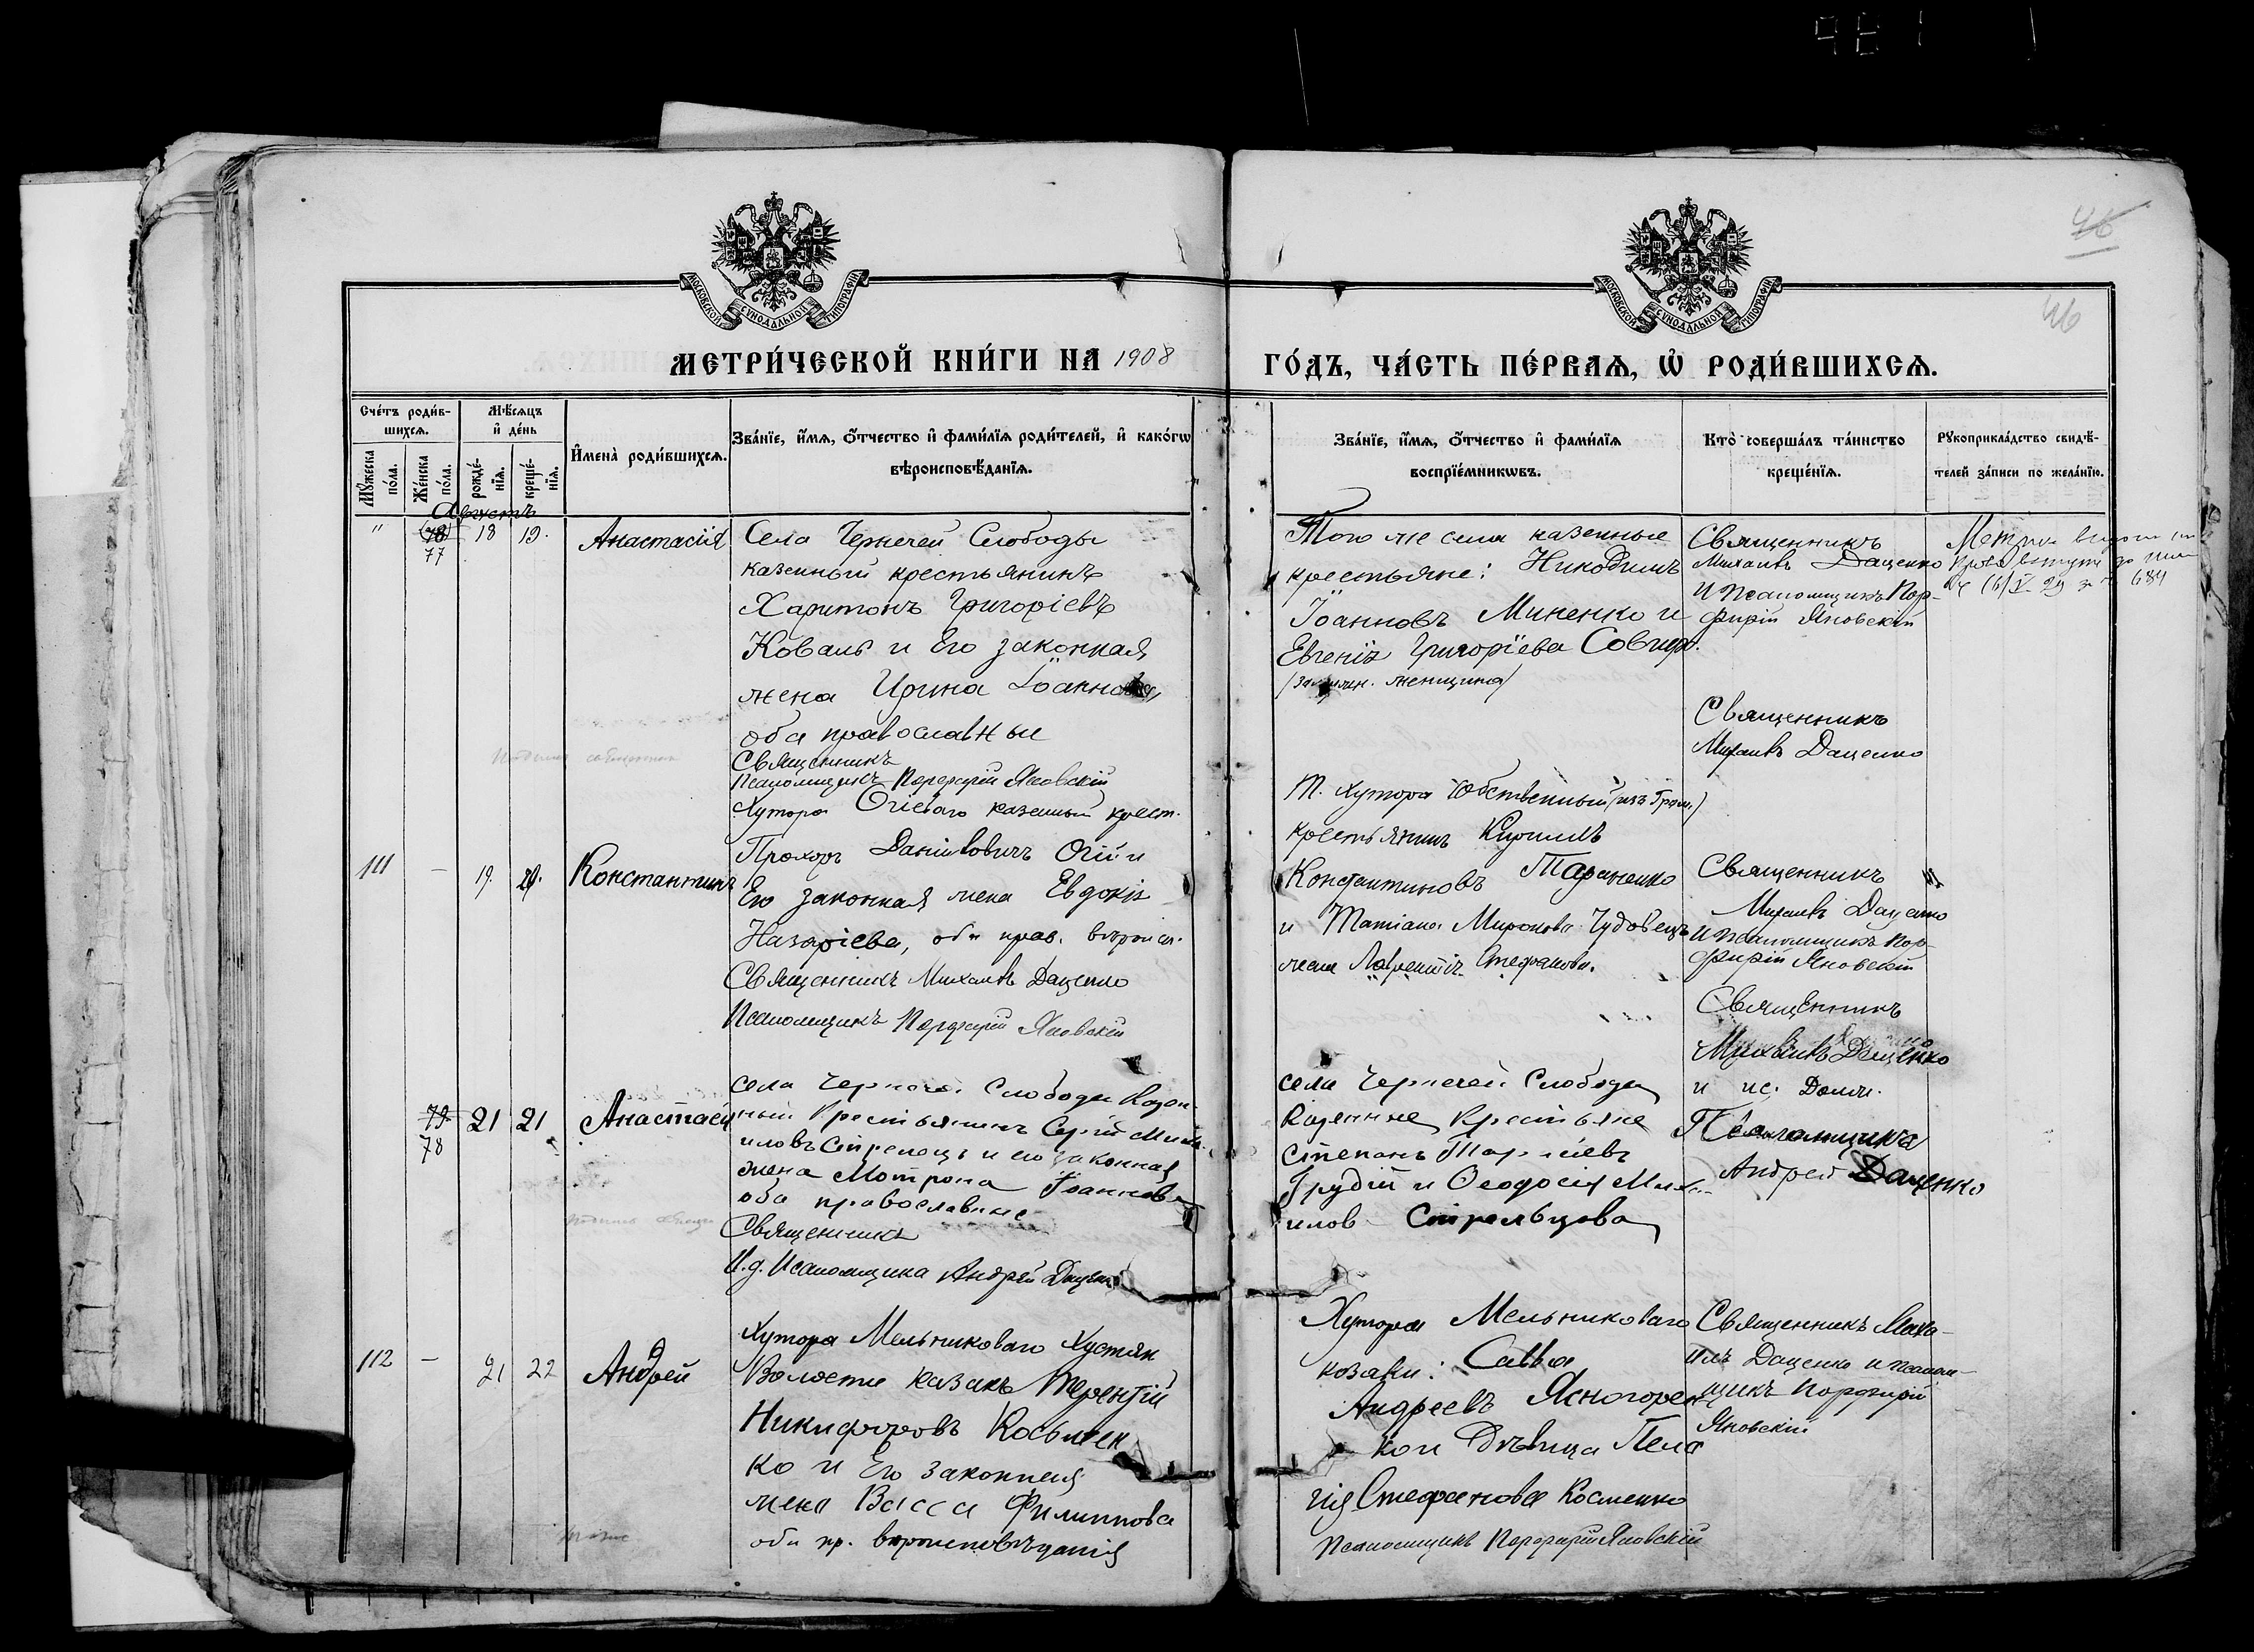 46
46
МОСКОВСКОЙ СУНОДАЛЬНОЙ ТИПОГРАФІИ
МОСКОВСКОЙ СУНОДАЛЬНОЙ ТИПОГРАФІИ
МЕТРИ́ЧЕСКОЙ КНИ́ГИ НА 1908
ГО́ДЪ, ЧА́СТЬ ПЕ́РВАѦ, Ѡ҆ РОДИ́ВШИХСѦ.
Сче́тъ роди́в-
шихсѧ.
Мꙋ́жеска
по́ла.
Же́нска
по́ла.
Мѣ́сѧцъ
и҆ де́нь
рожде́-
нїѧ.
креще́-
нїѧ.
И҆мена̀ роди́вшихсѧ.
Зва́нїе, и҆́мѧ, ѻ҆́тчество и҆ фами́лїѧ роди́телей, и҆ како́гѡ
вѣроисповѣ́данїѧ.
Зва́нїе, и҆́мѧ, ѻ҆́тчество и҆ фами́лїѧ
воспрїе́мникѡвъ.
Кто̀ соверша́лъ та́инство
креще́нїѧ.
Рꙋкоприкла́дство свидѣ́-
телей за́писи по жела́нїю.
Августъ
" 78 18 19. Анастасія
77
Села Чернечей Слободы
казенный крестьянинъ
Харитонъ Григоріевъ
Коваль и Его законная
жена Ирина Іоаннова,
оба православные
Священникъ
Псаломщикъ Порфирій Яновскій
Того же села казенные
крестьяне: Никодимъ
Іоанновъ Миненко и
Евгенія Григоріева
женщина/
Священникъ
Михаилъ Даценко
и псаломщикъ Пор-
фирій Яновскій
Священникъ
Михаилъ Даценко
684
111 — 19. 20. Константинъ
Хутора Огіеваго казенный крест.
Прохоръ Даніиловичъ Огій и
Его законная жена Евдокія
Назаріева, оба прав. вѣроисп.
Священникъ Михаилъ Даценко
Псаломщикъ Порфирій Яновскій
Т. хутора собственный
крестьянинъ Кириллъ
Константиновъ Тараненко
и Татіана Миронова
жена Стефанова.
Священникъ
Михаилъ Даценко
и псаломщикъ Пор-
фирій Яновскій
Священникъ
Михаилъ Даценко
79 21 21 Анастасія
78
села Чернечей Слободы Казен-
ный Крестьянинъ Сергій Миха-
иловъ Стрелецъ и его законная
жена Мотрона Іоаннова
оба православные
Священникъ
И.д. Псаломщика Андрей Даценко
села Чернечей Слободы
Казенные Крестьяне
Степанъ
Грудій и Ѳеодосія Миха-
илов Стрельцова
и ис. долж.
Псаломщика
Андрей Даценко
112 — 21 22 Андрей
Хутора Мельниковаго
Волости казакъ Терентій
Никифоровъ Косьмен
ко и Его законная
жена Васса Филиппова
оба пр. вѣроисповѣданія
Хутора Мельниковаго
козаки: Савва
Андреевъ Ясногорс
кой дѣвица Пела
гія Стефанова Костенко
Псаломщикъ Порфирій Яновскій
Священникъ Миха-
илъ Даценко и псалом-
щикъ Порфирій
Яновскій